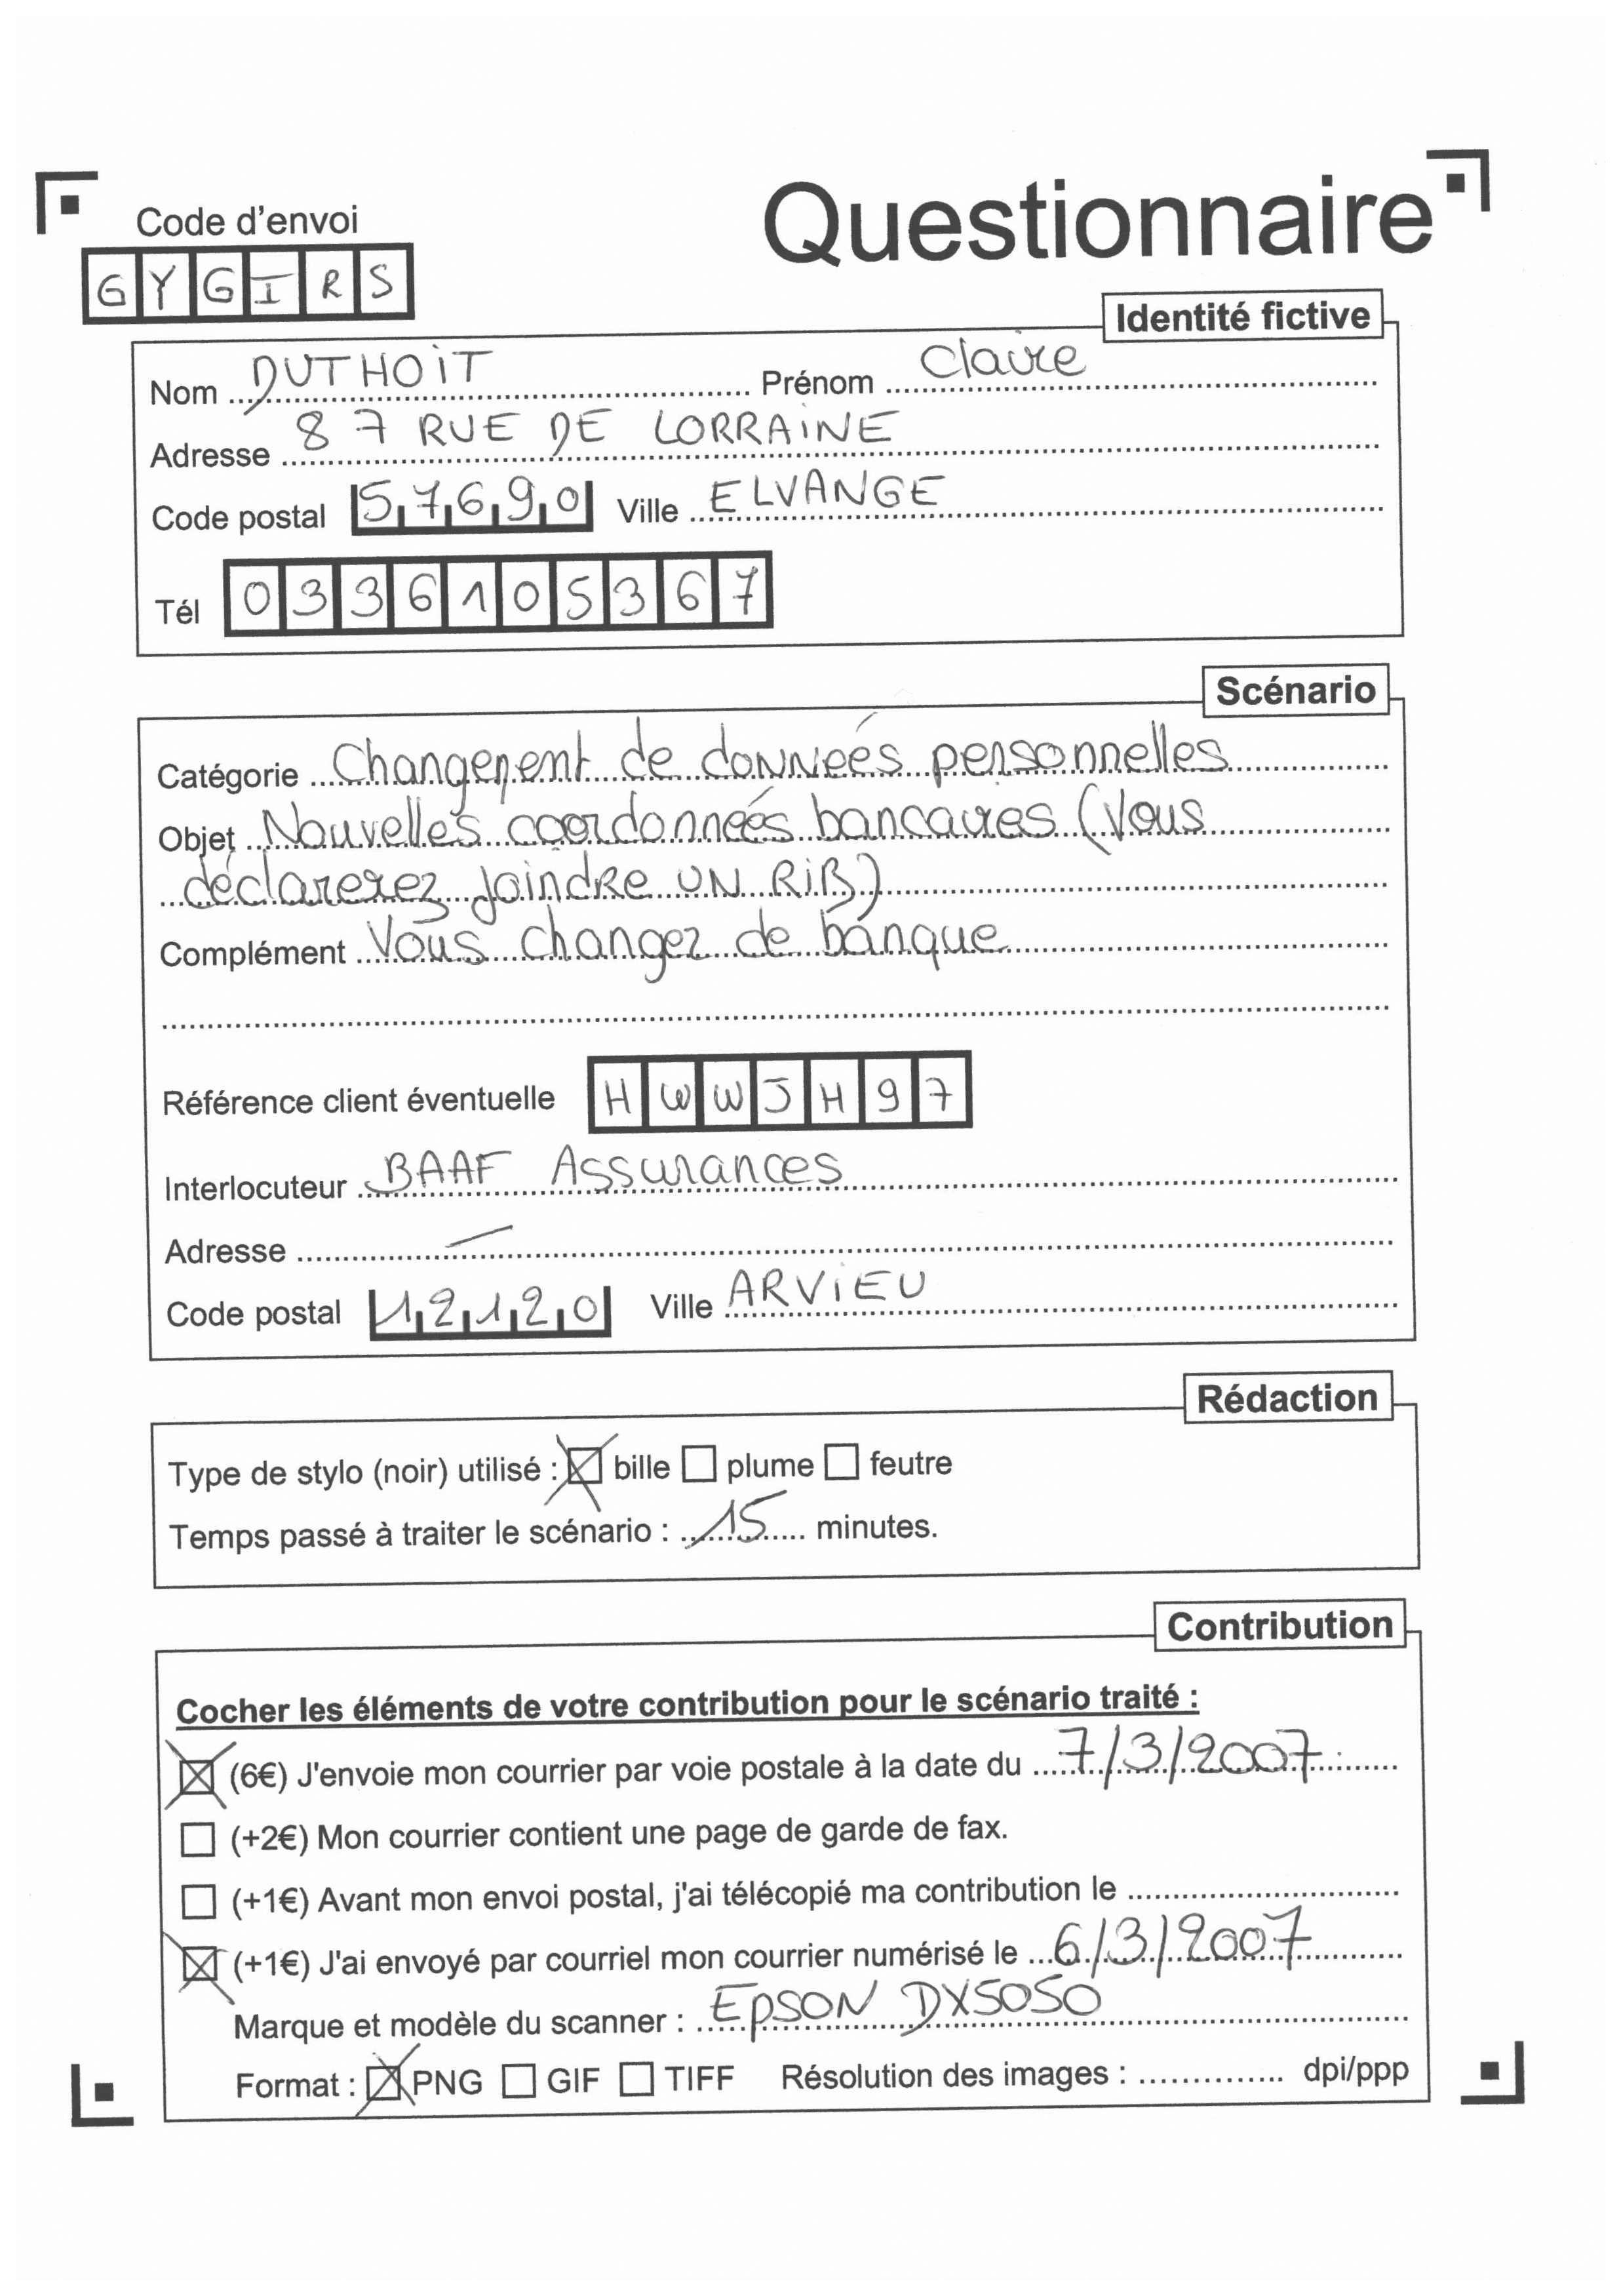 Questionnaire
Code d'envoi
GYGIRS
Identité fictive
Nom DUTHOIT Prénom Claire
Adresse 87 RUE DE LORRAINE
Code postal 57690 Ville ELVANGE
Tél 0336105367
Scénario
Catégorie Changement de données personnelles
Objet Nouvelles coordonnées bancaires (Vous
déclarerez joindre UN RIB)
Complément Vous changez de banque
Référence client éventuelle HWWJH97
Interlocuteur BAAF Assurances
Adresse —
Code postal 12120 Ville ARVIEU
Rédaction
Type de stylo (noir) utilisé : ☒ bille ☐ plume ☐ feutre
Temps passé à traiter le scénario : 15 minutes.
Contribution
Cocher les éléments de votre contribution pour le scénario traité :
☒ (6€) J'envoie mon courrier par voie postale à la date du 7/3/2007
☐ (+2€) Mon courrier contient une page de garde de fax.
☐ (+1€) Avant mon envoi postal, j'ai télécopié ma contribution le
☒ (+1€) J'ai envoyé par courriel mon courrier numérisé le 6/3/2007
Marque et modèle du scanner : EPSON DX5050
Format : ☒ PNG ☐ GIF ☐ TIFF Résolution des images : dpi/ppp